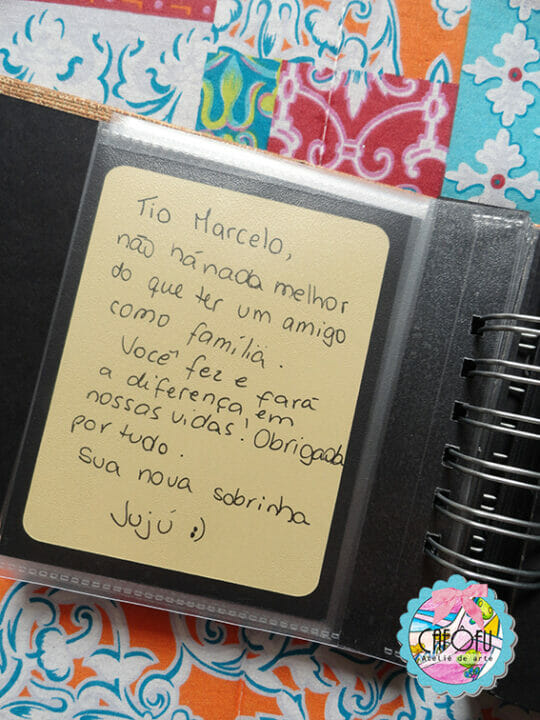 Tio Marcelo,
não há nada melhor
do que ter um amigo
como família.
Você fez e fará
a diferença em
nossas vidas! Obrigada
por tudo.
Sua nova sobrinha
Jujú :)
CAFOFU
Ateliê de arte